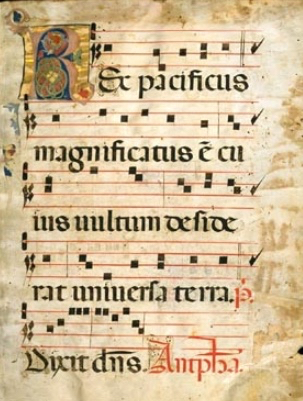 Rex pacificus
magnificatus ē cu
ius uultum deside
rat uniuersa terra. p̄.
Dixit dn̄s. Antpha.